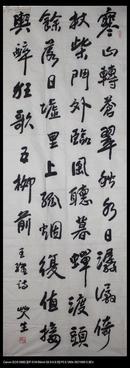 寒山轉蒼翠秋水日潺湲倚
杖柴門外臨風聽暮蟬渡頭
餘落日墟里上孤烟復值接
輿醉狂歌五柳前
王維詩